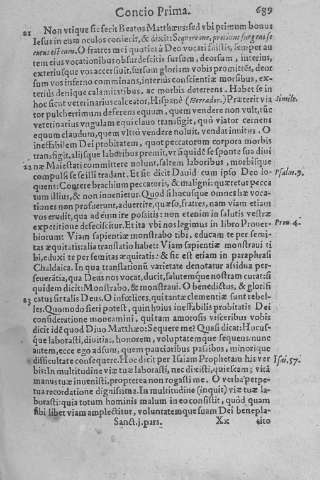 Concio Prima. 689
21 Non vtique sic fecit Beatus Matthæus: sed vbi primùm bonus
Iesus in eum oculos coniecit, & dixit: Sequere me, protinus surgens se-
cutus est eum. O fratres mei quoties à Deo vocati fuistis, semper au
tem eius vocationibus obsurdescitis sursum, deorsum, interius,
exteriusque vos accersiuit, sursum gloriam vobis promittens, deor
sum vos inferno comminans, interius conscientiæ morsibus, ex-
teriùs denique calamitatibus, ac morbis deterrens. Habet se in
hoc sicut veterinarius calceator, Hispanè (Herrador.) Præterit via
tor pulcherrimum deferens equum, quem vendere non vult, sic
veterinarius vngulam equi clauo transfigit, quò viator cernens
equum claudum, quem vltrò vendere noluit, vendat inuitus. O
ineffabilem Dei probitatem, quot peccatorum corpora morbis
transfigit, aliisque laboribus premit, vt siquidè se sponte sua diui
22 næ Maiestati committere nolunt, saltem laboribus, morbisque
compulsi se se illi tradant. Et sic dicit Dauid cum ipso Deo lo-
quens: Contere brachium peccatoris, & maligni: quæretur pecca
tum illius, & non inuenietur. Quòd si hucusque omnes hæ voca-
tiones non profuerunt, aduertite, quæso, fratres, nam viam etiam
vos erudit, qua ad eum ire possitis: non etenim in salutis vestræ
expetitione defeciscitur. Et ita vbi nos legimus in libro Prouer-
biorum: Viam sapientiæ monstrabo tibi, educam te per semi-
tas æquitatis: alia translatio habet: Viam sapientiæ monstraui ti
bi, eduxi te per semitas æquitatis: & sic est etiam in paraphrasi
Chaldaica. In qua translationū varietate denotatur assidua per-
seuerātia, qua Deus nos vocat, ducit, salutemque nostram curat: si
quidem dicit: Monstrabo, & monstraui. O benedictus, & glorifi
23 catus sit talis Deus. O infœlices, qui tantæ clementiæ sunt rebel-
les. Quomodo fieri potest, quin huius ineffabilis probitatis Dei
consideratione moueamini, quitam amorosis visceribus vobis
dicit id&#x27; quod Diuo Matthæo: Sequere me? Quasi dicat: Hucus-
que laborasti, diuitias, honorem, voluptatemque sequens: nunc
autem, ecce ego adsum, quem paucioribus passibus, minorique
difficultate consequere. Hoc dicit per Isaiam Prophetam his ver
bis: In multitudine viæ tuæ laborasti, nec dixisti, quiescam; vitā
manus tuæ inuenisti, propterea non rogasti me. O verba perpe-
tua recordatione dignissima. In multitudine (inquit) viæ tuæ la-
borasti: quia totum hominis malum in eo consistit, quòd quam
sibi libet viam amplectitur, voluntatemque suam Dei benepla-
Sanct. j. pars. Xx cito
Simile.
Psalm. 9.
Prou. 4.
Isai. 57.